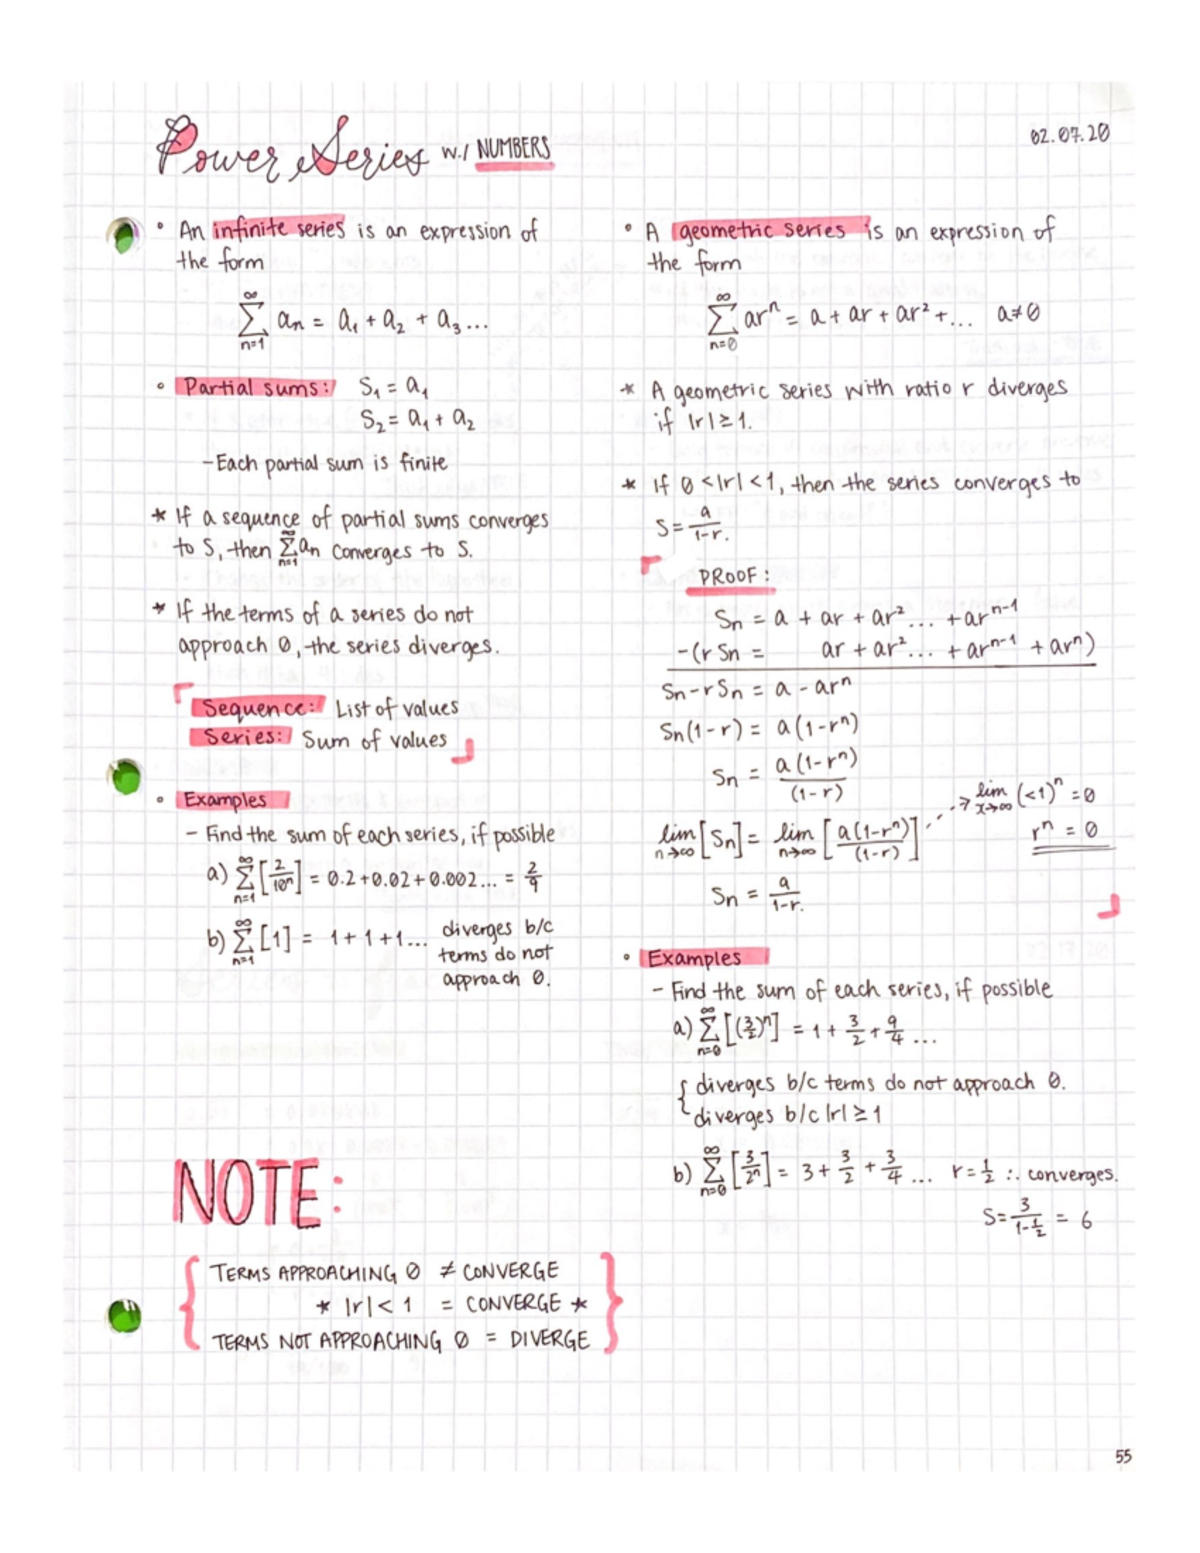 Power Series w./ NUMBERS
02.07.20
• An infinite series is an expression of
the form
∞
Σ an = a₁ + a₂ + a₃...
n=1
• Partial sums: S₁ = a₁
S₂ = a₁ + a₂
- Each partial sum is finite
* If a sequence of partial sums converges
to S, then ∞Σn=1 an converges to S.
* If the terms of a series do not
approach 0, the series diverges.
Sequence: List of values
Series: Sum of values
• Examples
- Find the sum of each series, if possible
a) ∞Σn=1 [2/10ⁿ] = 0.2 + 0.02 + 0.002... = 2/9
b) ∞Σn=1 [1] = 1 + 1 + 1... diverges b/c
terms do not
approach 0.
NOTE:
TERMS APPROACHING 0 ≠ CONVERGE
* |r| < 1 = CONVERGE *
TERMS NOT APPROACHING 0 = DIVERGE
• A geometric series is an expression of
the form
∞
Σ arⁿ = a + ar + ar² + ... a≠0
n=0
* A geometric series with ratio r diverges
if |r| ≥ 1.
* If 0 < |r| < 1, then the series converges to
S = a/1-r.
PROOF:
Sn = a + ar + ar² ... + arⁿ⁻¹
-(r Sn = ar + ar² ... + arⁿ⁻¹ + arⁿ)
Sn - r Sn = a - arⁿ
Sn(1-r) = a(1-rⁿ)
Sn = a(1-rⁿ)/(1-r)
lim n→∞ [Sn] = lim n→∞ [a(1-rⁿ)/(1-r)]
lim x→∞ (<1)ⁿ = 0
rⁿ = 0
Sn = a/1-r.
• Examples
- Find the sum of each series, if possible
a) ∞Σn=0 [(3/2)ⁿ] = 1 + 3/2 + 9/4 ...
{ diverges b/c terms do not approach 0.
diverges b/c |r| ≥ 1
b) ∞Σn=0 [3/2ⁿ] = 3 + 3/2 + 3/4 ... r = 1/2 ∴ converges.
S = 3/1-1/2 = 6
55